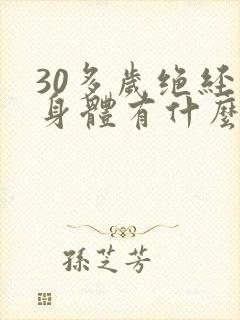 30多歲绝经
身體有什麼
孫芝芳